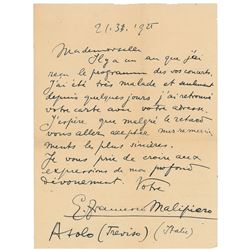 Mademoiselle
Il y a un an que j'ai
reçu le programme des vos concerts.
J'ai été très malade et seulement
depuis quelques jours j'ai retrouvé
votre carte avec votre adresse.
J'espère que malgré le retard
vous allez accepter mes remercie
ments les plus sincères.
Je vous prie de croire aux
expressions de mon profond
dévouement. Votre
G. Francesco Malipiero
Asolo (Treviso) (Italie)